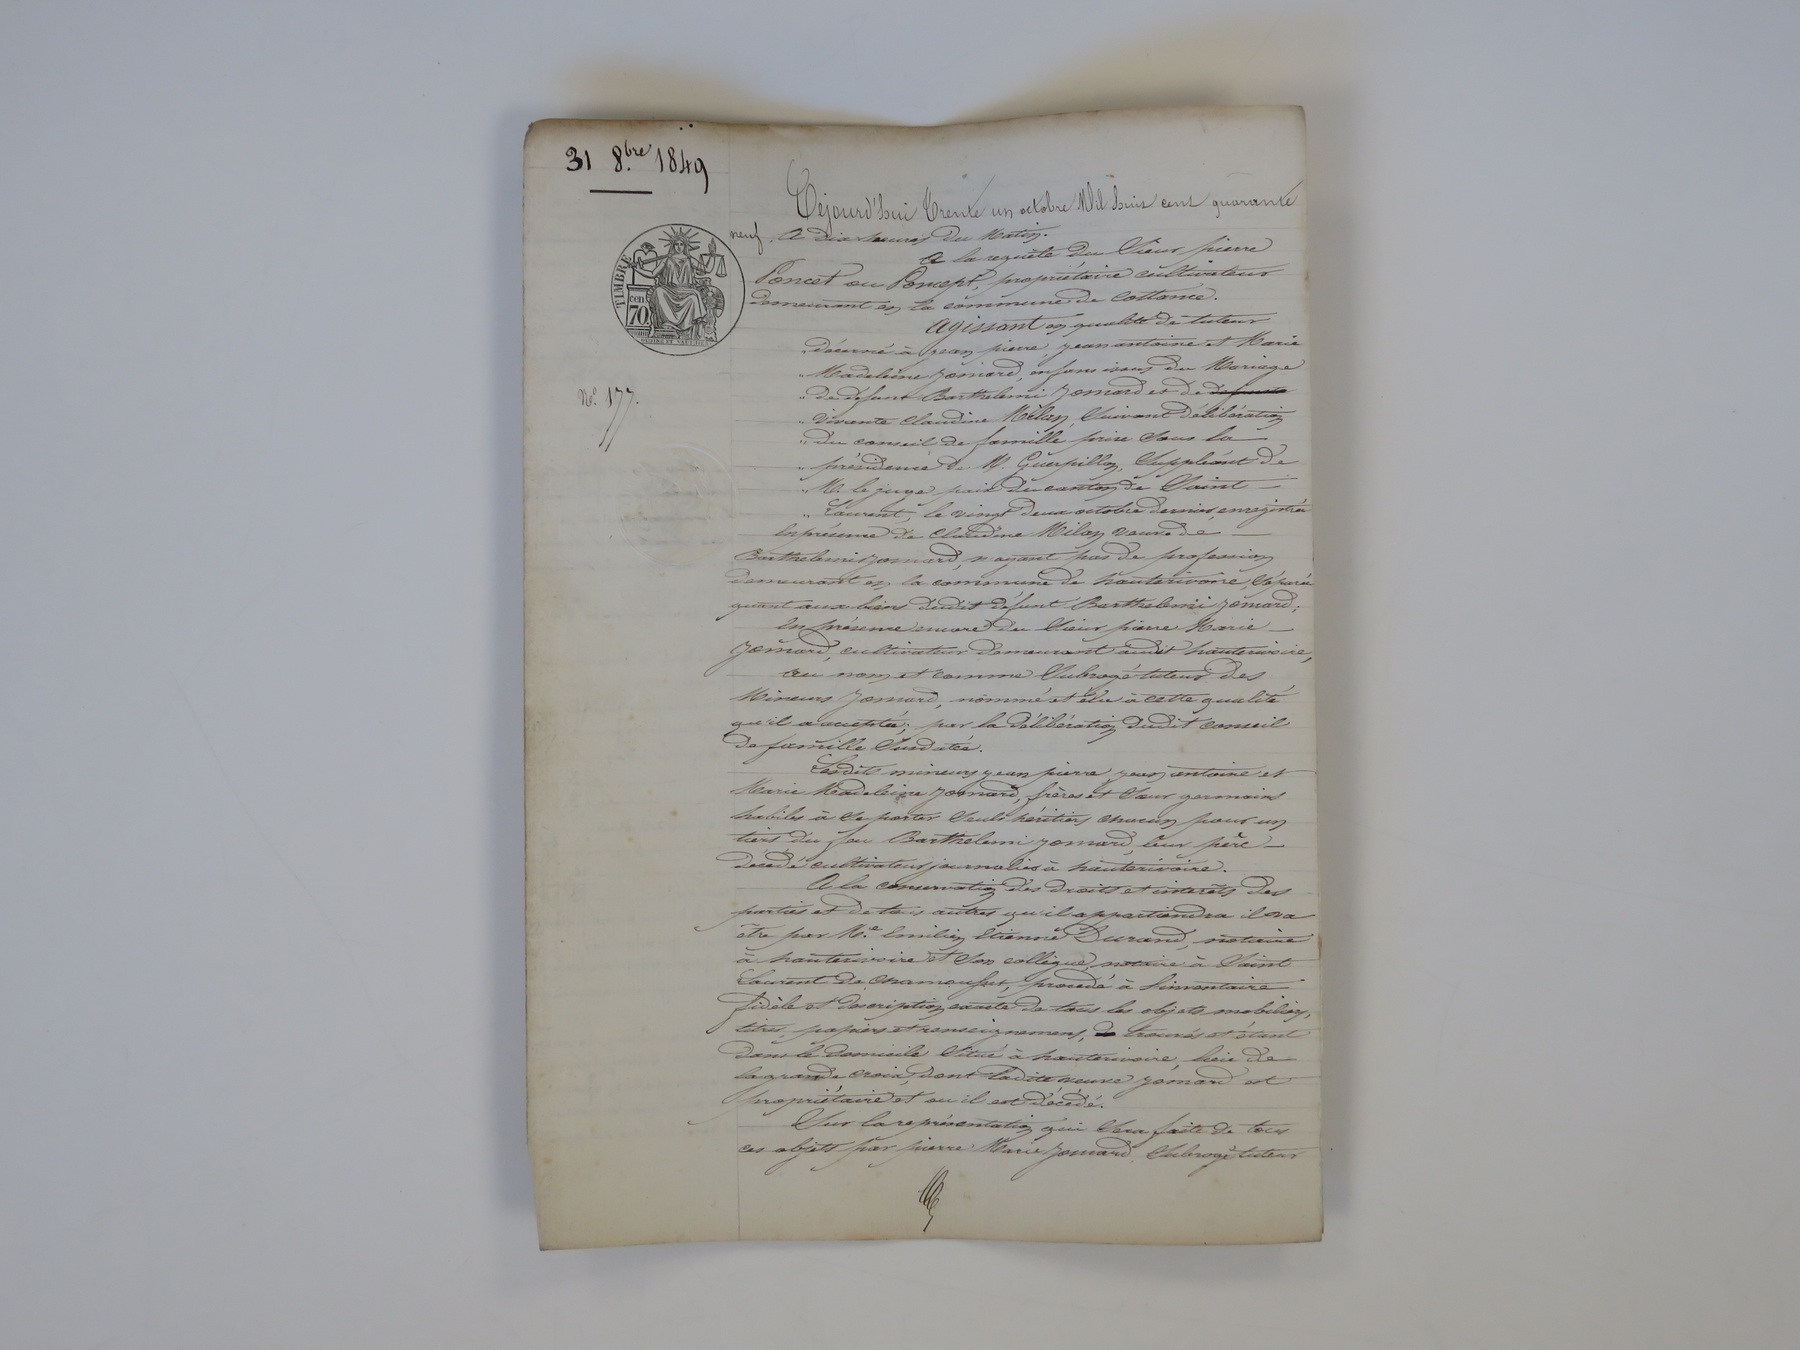 31 8.bre 1849
Cejourd'hui trente un octobre Mil huit cent quarante
neuf. A dix heures du Matin.
TIMBRE
cen
70.
A la requête du Sieur pierre
Poncet ou Poncept, propriétaire cultivateur
demeurant en la commune de Cottance.
Agissant en qualité de tuteur
" décerné à jean pierre, jean antoine et Marie
" Madeleine Jomard, enfans issus du Mariage
N.º 177.
" de défunt Barthelemi Jomard et de defunte
" vivante Claudine Milan, Suivant délibération
" du conseil de famille prise sous la
" présidence de M. Guerpillon, Suppléant de
" M. le juge paix du canton de Saint
" Laurent, le vingt deux octobre dernier, enregistrée
En présence de Claudine Milan veuve de
Barthelemi Jomard, n'ayant pas de profession
demeurant en la commune de hauterivoire, Séparée
quant aux biens dudit défunt Barthelemi Jomard;
En présence encore du Sieur pierre Marie
Jomard, cultivateur demeurant audit hauterivoire,
au nom et comme Subrogé tuteur des
Mineurs Jomard, nommé et élu à cette qualité
qu'il a acceptée, par la délibération dudit conseil
de famille Susdatée.
Lesdits mineurs jean pierre, jean antoine et
Marie Madeleine Jomard, frères et Sœur germains
habiles à se porter Seuls héritiers chacun pour un
tiers du feu Barthelemi Jomard, leur père
décédé cultivateur journalier à hauterivoire.
A la conservation des droits et intérêts des
parties et de tous autres qu'il appartiendra il va
être par M.e Emilien Etienne Durand, notaire
à hauterivoire et Son collègue, notaire à Saint
Laurent de Chamousset, procédé à l'inventaire
fidèle et description exacte de tous les objets mobiliers,
titres, papiers et renseignemens, trouvés et étant
dans le domicile Situé à hauterivoire, lieu de
la grande croix, dont ladite veuve Jomard est
propriétaire et où il est décédé.
Sur la représentation qui Sera faite de tous
ces objets par pierre Marie Jomard, Subrogé tuteur